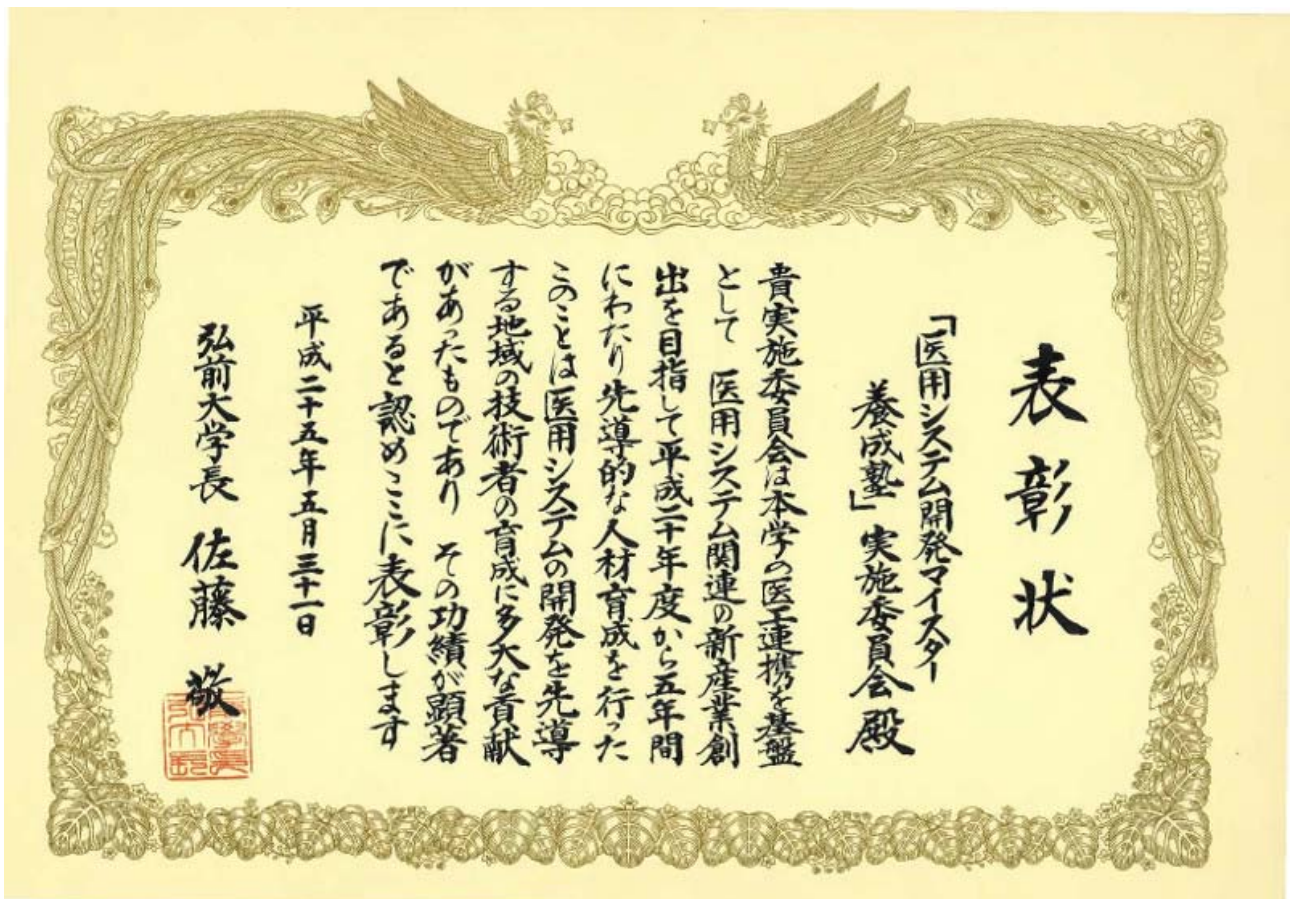 表彰状
「医用システム開発マイスター
養成塾」実施委員会殿
貴実施委員会は本学の医工連携を基盤
として 医用システム関連の新産業創
出を目指して平成二十年度から五年間
にわたり先導的な人材育成を行った
このことは医用システムの開発を先導
する地域の技術者の育成に多大な貢献
があったものであり その功績が顕著
であると認めここに表彰します
平成二十五年五月三十一日
弘前大学長 佐藤 敬